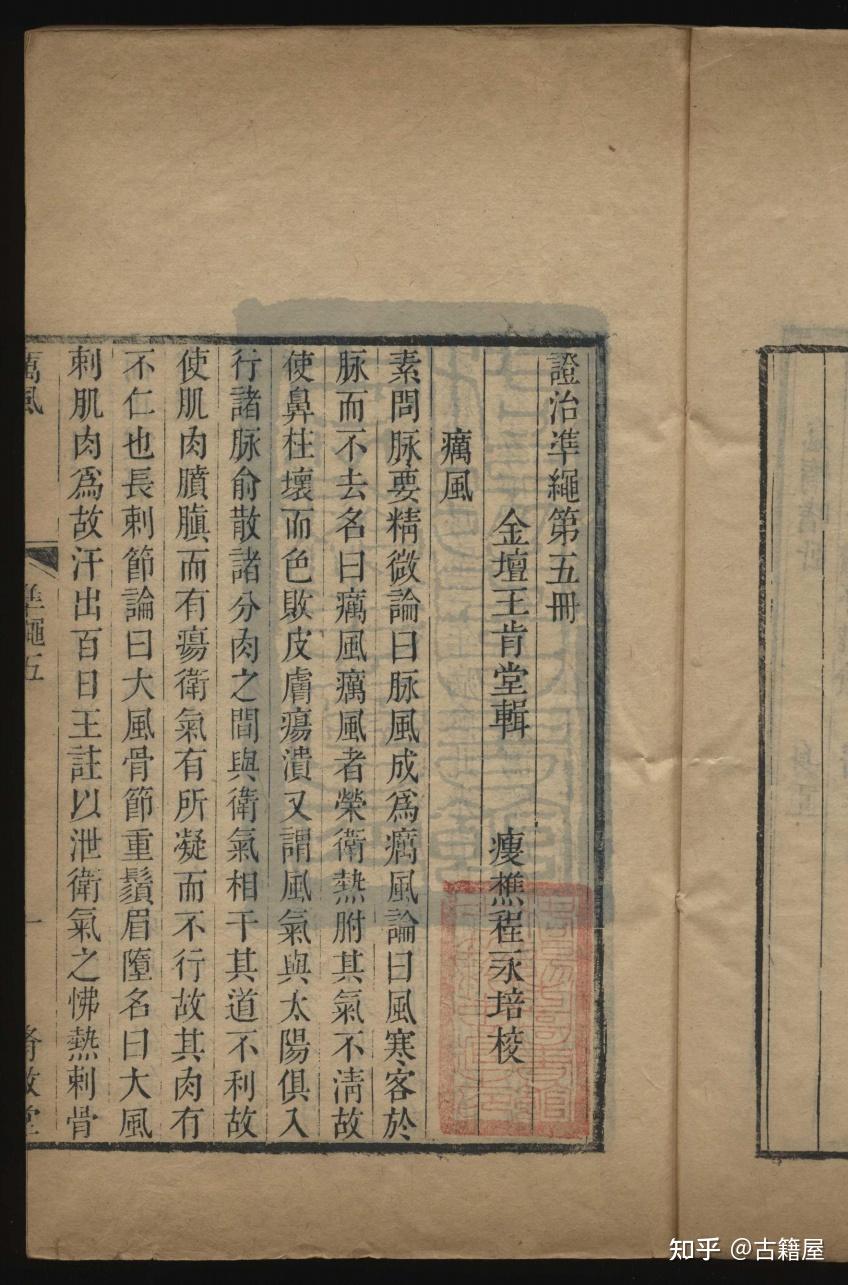 證治準繩第五冊
金壇王肯堂輯 瘦樵程永培校
癘風
素問脉要精微論曰脉風成為癘風論曰風寒客於
脉而不去名曰癘風癘風者榮衛熱胕其氣不清故
使鼻柱壞而色敗皮膚瘍潰又謂風氣與太陽俱入
行諸脉俞散諸分肉之間與衛氣相干其道不利故
使肌肉䐜而有瘍衛氣有所凝而不行故其肉有
不仁也長刺節論曰大風骨節重鬚眉墮名曰大風
刺肌肉為故汗出百日王註以泄衛氣之怫熱刺骨
癘風
準繩五
一
知乎 @古籍屋